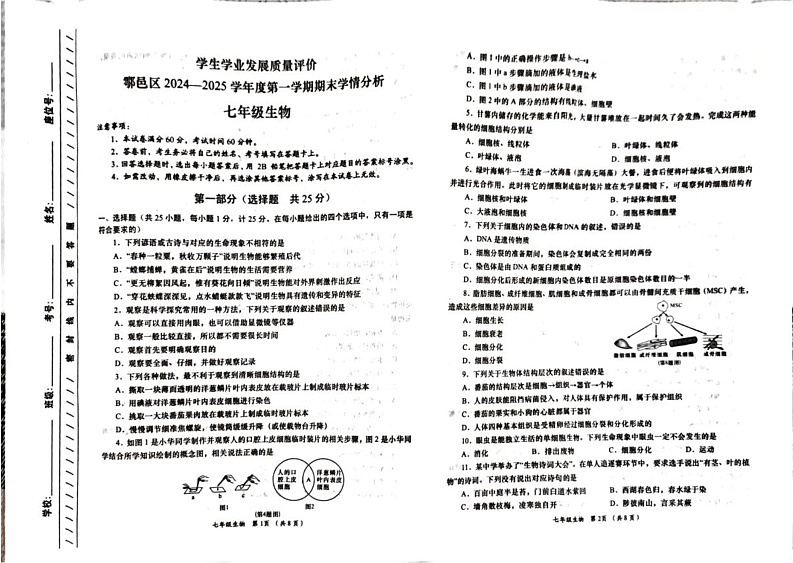 学生学业发展质量评价
鄠邑区 2024—2025 学年度第一学期期末学情分析
七年级生物
注意事项：
1．本试卷满分 60 分，考试时间 60 分钟。
2．答卷前，考生务必将自己的姓名、考号填写在答题卡上。
3．回答选择题时，选出每小题答案后，用 2B 铅笔把答题卡上对应题目的答案标号涂黑。
4．如需改动，用橡皮擦干净后，再选涂其他答案标号，涂写在本试卷上无效。
第一部分（选择题 共 25 分）
一、选择题（共 25 小题，每小题 1 分，计 25 分，在每小题给出的四个选项中，只有一项是
符合要求的）
1．下列谚语或古诗与对应的生命现象不相符的是
A．“春种一粒粟，秋收万颗子”说明生物能够繁殖后代
B．“螳螂捕蝉，黄雀在后”说明生物的生活需要营养
C．“更无柳絮因风起，惟有葵花向日倾”说明生物能对外界刺激作出反应
D．“穿花蛱蝶深深见，点水蜻蜓款款飞”说明生物具有遗传和变异的特征
2．观察是科学探究常用的一种方法，下列关于观察的叙述错误的是
A．观察可以直接用肉眼，也可以借助显微镜等仪器
B．观察一般比较直接，所以都不需要很长时间
C．观察首先要明确观察目的
D．观察要全面、仔细，并做好观察记录
3．下列各种做法，最不利于观察到清晰细胞结构的是
A．撕取一块薄而透明的洋葱鳞片叶内表皮放在载玻片上制成临时玻片标本
B．用碘液对洋葱鳞片叶内表皮细胞进行染色
C．挑取一大块番茄果肉放在载玻片上制成临时玻片标本
D．慢慢调节细准焦螺旋，使镜筒缓缓升降（或使载物台升降）
4．如图 1 是小华同学制作并观察人的口腔上皮细胞临时装片的相关步骤，图 2 是小华同
学结合所学知识绘制的概念图，相关说法正确的是
人的口腔上皮细胞
A
洋葱鳞片叶内表皮细胞
图1
图2
(第4题图)
七年级生物 第 1 页 （共 8 页）
A．图 1 中的正确操作步骤是
B．图 1 中 a 步骤滴加的液体是生理盐水
C．图 1 中 b 步骤滴加的液体是
D．图 2 中的 A 部分的结构有线粒体、细胞壁
5．甘薯内储存的化学能来自阳光，大量甘薯堆放在一起时间久了会发热。完成这两种能
量转化的细胞结构分别是
A．细胞核、线粒体
B．叶绿体、线粒体
C．叶绿体、液泡
D．细胞核、液泡
6．绿叶海蜗牛一生进食一次海藻（滨海无隔藻）大餐，进食后便将叶绿体吸入到细胞内
并进行光合作用。此时将它的细胞制成临时装片放在光学显微镜下，可观察到的细胞结构有
A．细胞核和叶绿体
B．叶绿体和细胞壁
C．大液泡和细胞核
D．细胞核和细胞壁
7．下列关于细胞内的染色体和 DNA 的叙述，错误的是
A．DNA 是遗传物质
B．细胞分裂的准备期间，染色体会复制成完全相同的两份
C．染色体是由 DNA 和蛋白质组成的
D．细胞分化后形成的新细胞内染色体数目是原细胞染色体数目的一半
8．脂肪细胞、成纤维细胞、肌细胞和成骨细胞都可以由骨髓间充质干细胞（MSC）产生，
造成这些细胞差异的原因是
A．细胞生长
B．细胞衰老
C．细胞分化
D．细胞分裂
MSC
脂肪细胞 成纤维细胞 肌细胞 成骨细胞
(第8题图)
9．下列关于生物体结构层次的叙述错误的是
A．番茄的结构层次是细胞→组织→器官→个体
B．人的皮肤能阻挡病菌侵入，对人体具有保护作用，属于保护组织
C．番茄的果实和小狗的心脏都属于器官
D．人体四种基本组织是受精卵经过细胞分裂和分化形成的
10．眼虫是能独立生活的单细胞生物，下列生命现象中眼虫一定不会发生的是
A．消化
B．排出废物
C．细胞分化
D．运动
11．某中学举办了“生物诗词大会”。在单人追逐赛环节中，要求选手说出“有茎、叶的植
物”的诗词。下列没有说出对应诗句的是
A．百亩中庭半是苔，门前白道水萦回
B．西湖春色归，春水绿于染
C．墙角数枝梅，凌寒独自开
D．陟彼南山，言采其蕨
七年级生物 第 2 页 （共 8 页）
学校：
班级：
考号：
姓名：
座位号：
密 封 线 内 不 要 答 题